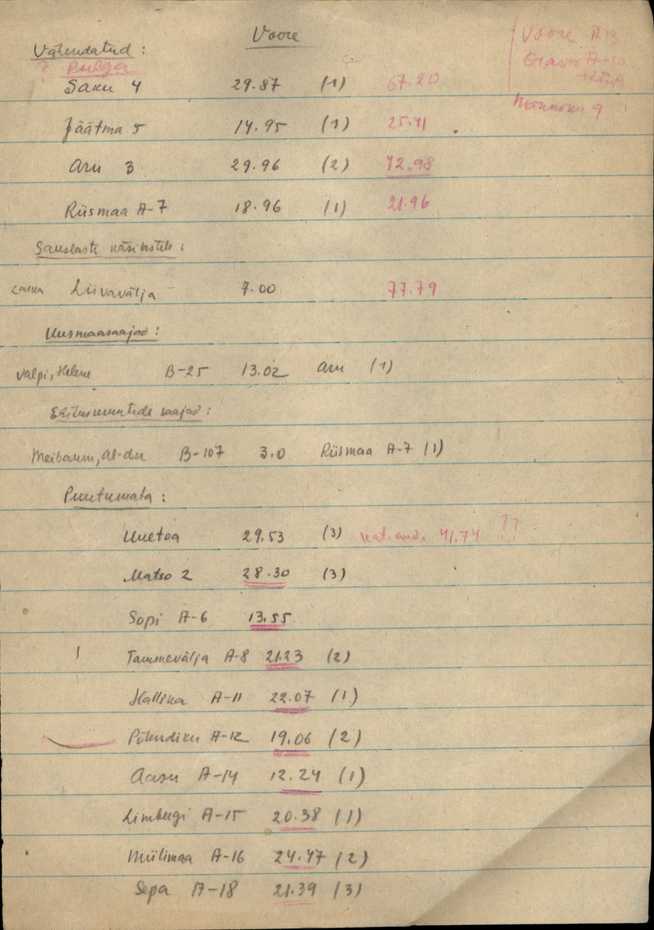 Voore
Voore A 13
Vähendatud :
Saku 4 29.87 (1) 67.20
Jäätma 5 14.95 (1) 25.41
Aru 3 29.96 (2) 42.98
Riismaa A-7 18.96 (1) 21.96
Liivavälja 7.00 77.79
Uusmaasaajad :
Valpi, Helene B-25 13.02 Aru (1)
saajad :
Meibaum, Al-der B-107 3.0 Riismaa A-7 (1)
Puutumata :
Uuetoa 29.53 (3) 41.74 ??
Matso 2 28.30 (3)
Sopi A-6 13.55
! Tammevälja A-8 21.23 (2)
Kallina A-11 22.07 (1)
A-12 19.06 (2)
Aasu A-14 12.24 (1)
Limbergi A-15 20.38 (1)
Miilimaa A-16 24.47 (2)
Sepa A-18 21.39 (3)